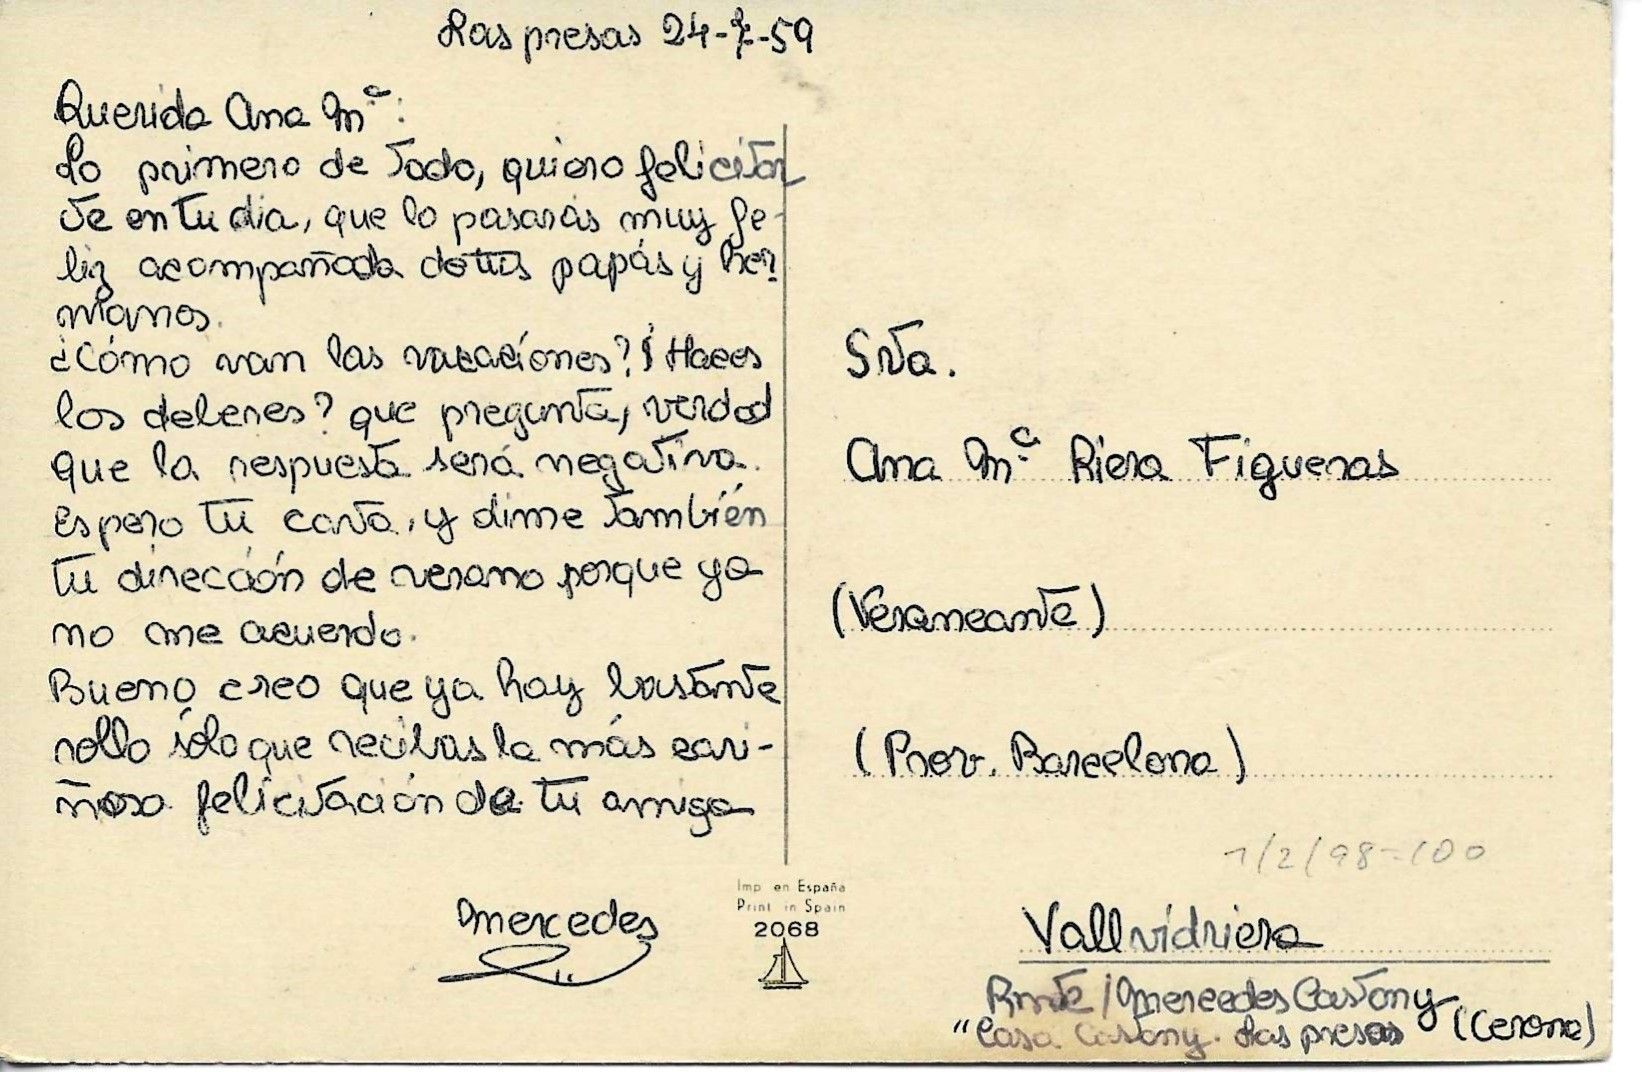 Las presas 24-7-59
Querida Ana Mª:
Lo primero de todo, quiero felicitar
te en tu dia, que lo pasarás muy fe-
liz acompañada de tus papás y her-
manos.
¿Cómo van las vacaciones? ¿Haces
los deberes? que pregunta, verdad
que la respuesta será negativa.
Espero tu carta, y dime también
tu dirección de verano porque ya
no me acuerdo.
Bueno creo que ya hay bastante
rollo sólo que recibas la más cari-
ñosa felicitación de tu amiga
Mercedes
Imp en España
Print in Spain
2068
Srta.
Ana Mª Riera Figueras
(Veraneante)
(Prov. Barcelona)
1/2/98=100
Vallvidriera
Rmte/Mercedes Castony
"Casa Castony. Las presas (Gerona)